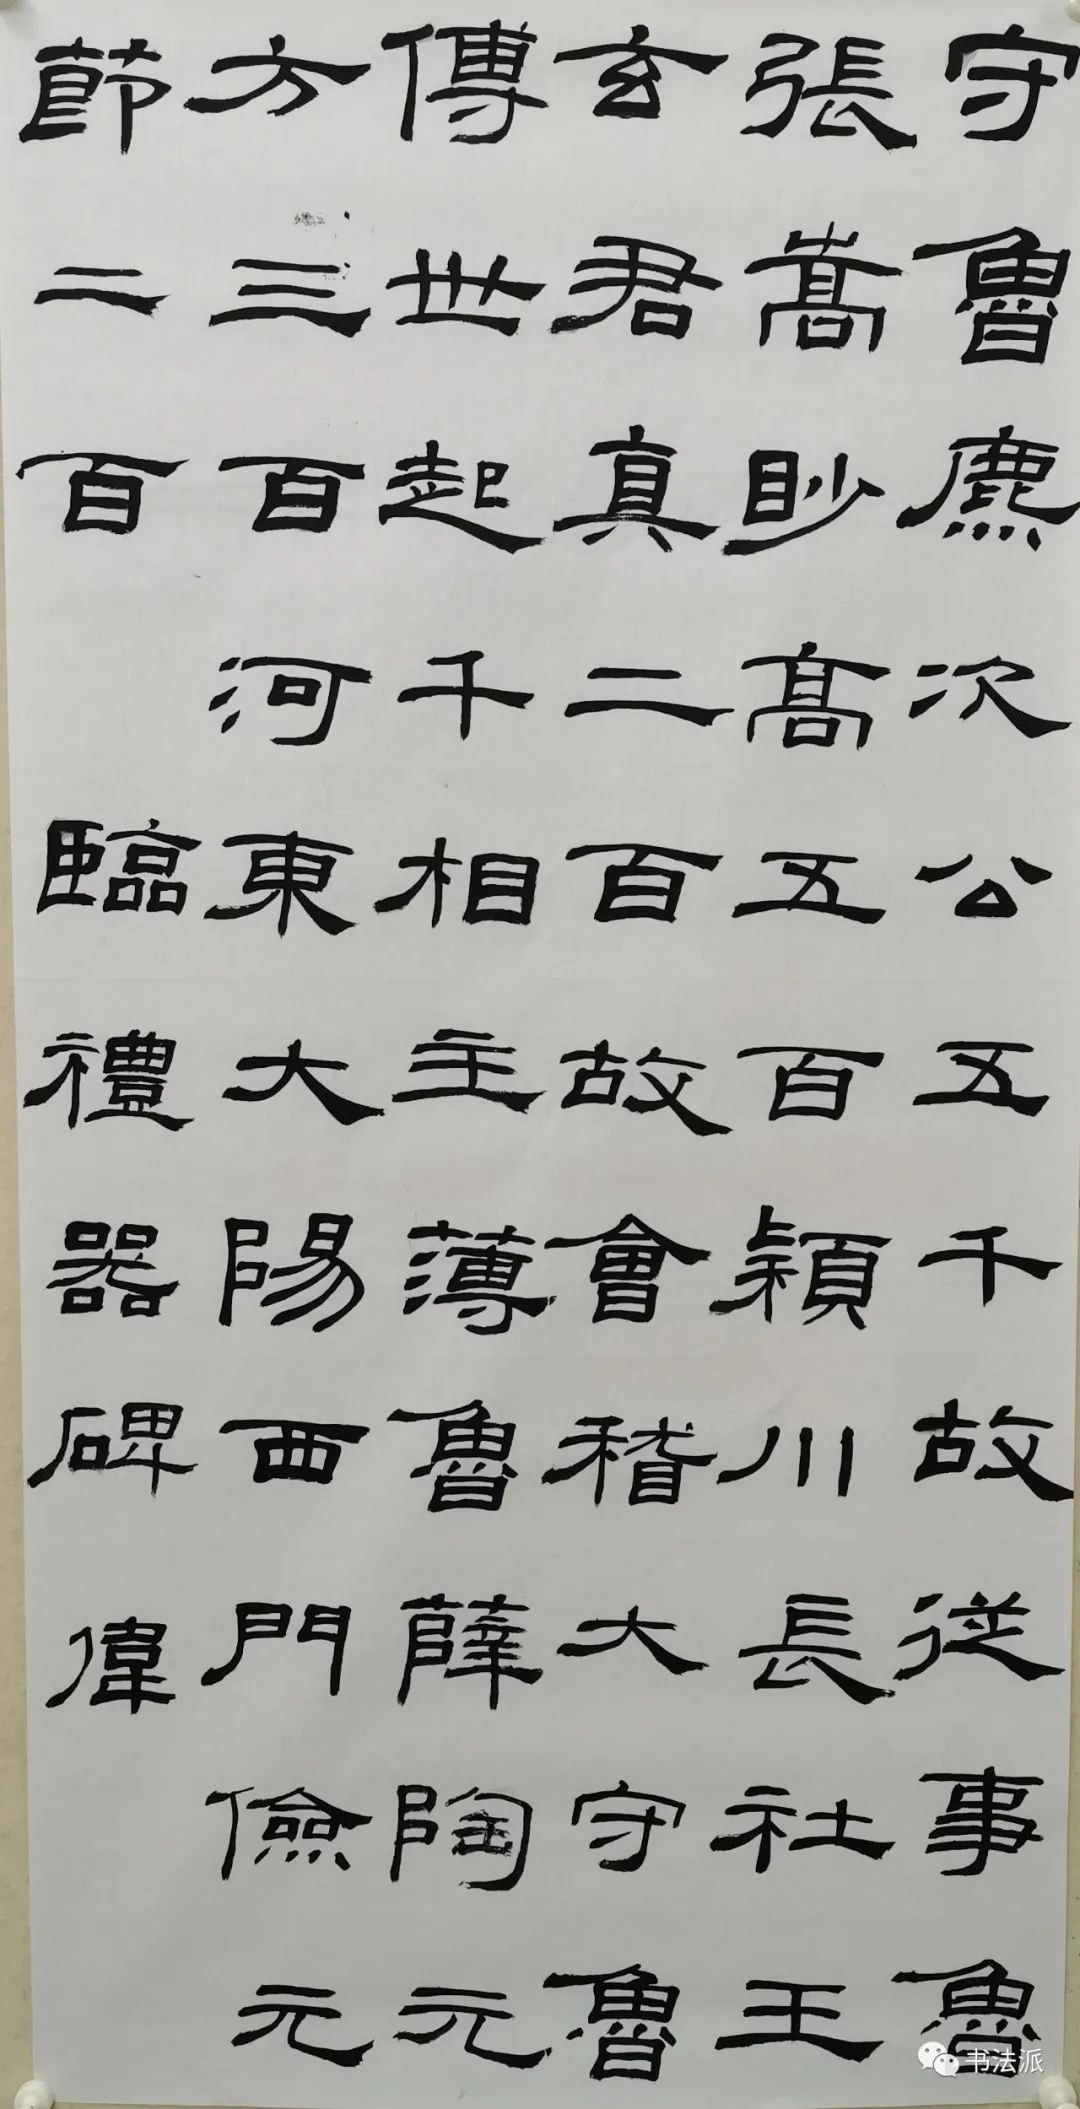 守魯麃次公五千故從事魯
張嵩眇高五百潁川長社王
玄君真二百故會稽大守魯
傅世起千相主薄魯薛陶元
方三百河東大陽西門儉元
節二百臨禮器碑偉
书法派